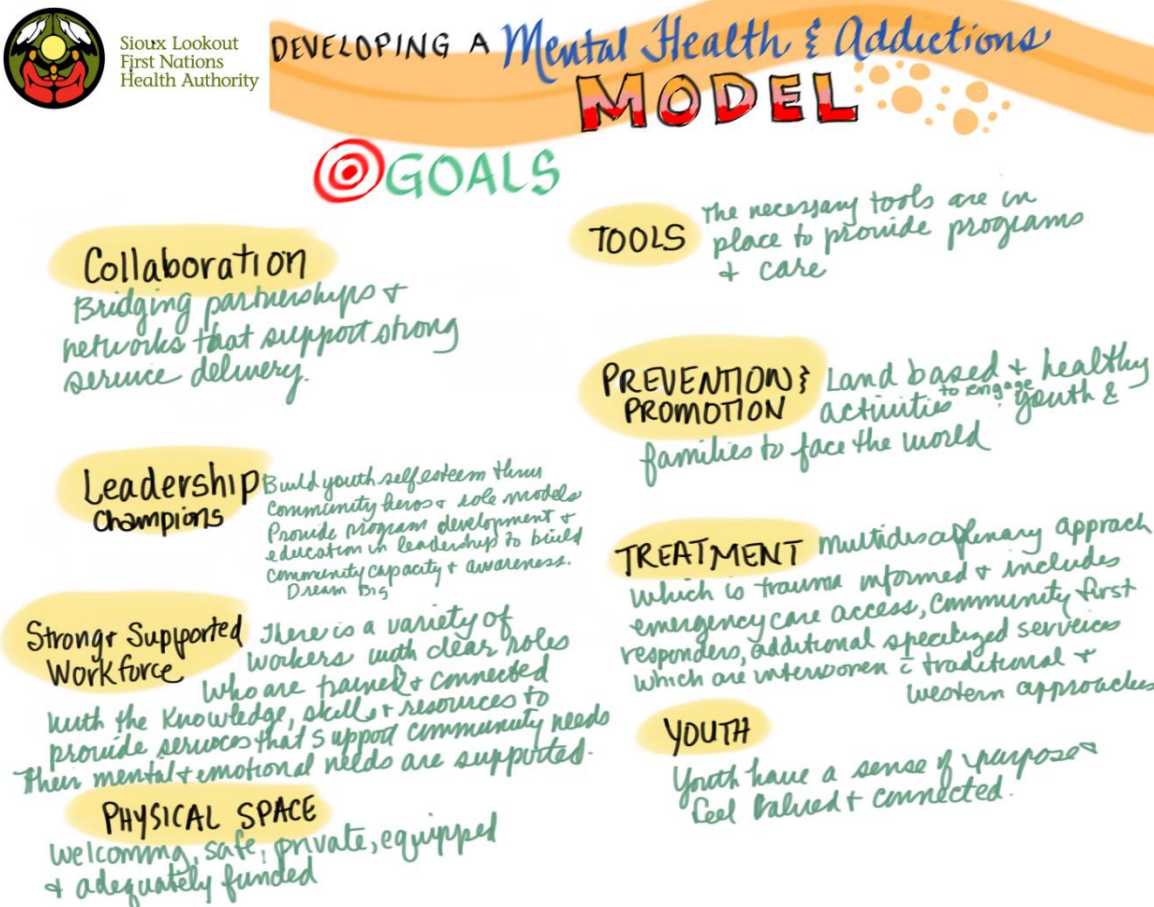 Sioux Lookout
First Nations
Health Authority
DEVELOPING A Mental Health & Addictions
MODEL
GOALS
Collaboration
Bridging partnerships +
networks that support strong
service delivery.
Leadership
Champions
Build youth self esteem thru
community heros + role models
Provide program development +
education in leadership to build
community capacity + awareness.
Dream Big
Strong + Supported
Workforce
There is a variety of
workers with clear roles
who are trained + connected
with the knowledge, skills + resources to
provide services that support community needs
Their mental + emotional needs are supported.
PHYSICAL SPACE
welcoming, safe, private, equipped
+ adequately funded
TOOLS
The necessary tools are in
place to provide programs
+ care
PREVENTION &
PROMOTION
Land based + healthy
activities to engage youth &
families to face the world
TREATMENT
multidisciplenary approach
which is trauma informed + includes
emergency care access, community first
responders, additional specilized serveices
which are interwoven c̄ traditional +
western approaches
YOUTH
Youth have a sense of purpose +
feel valued + connected.